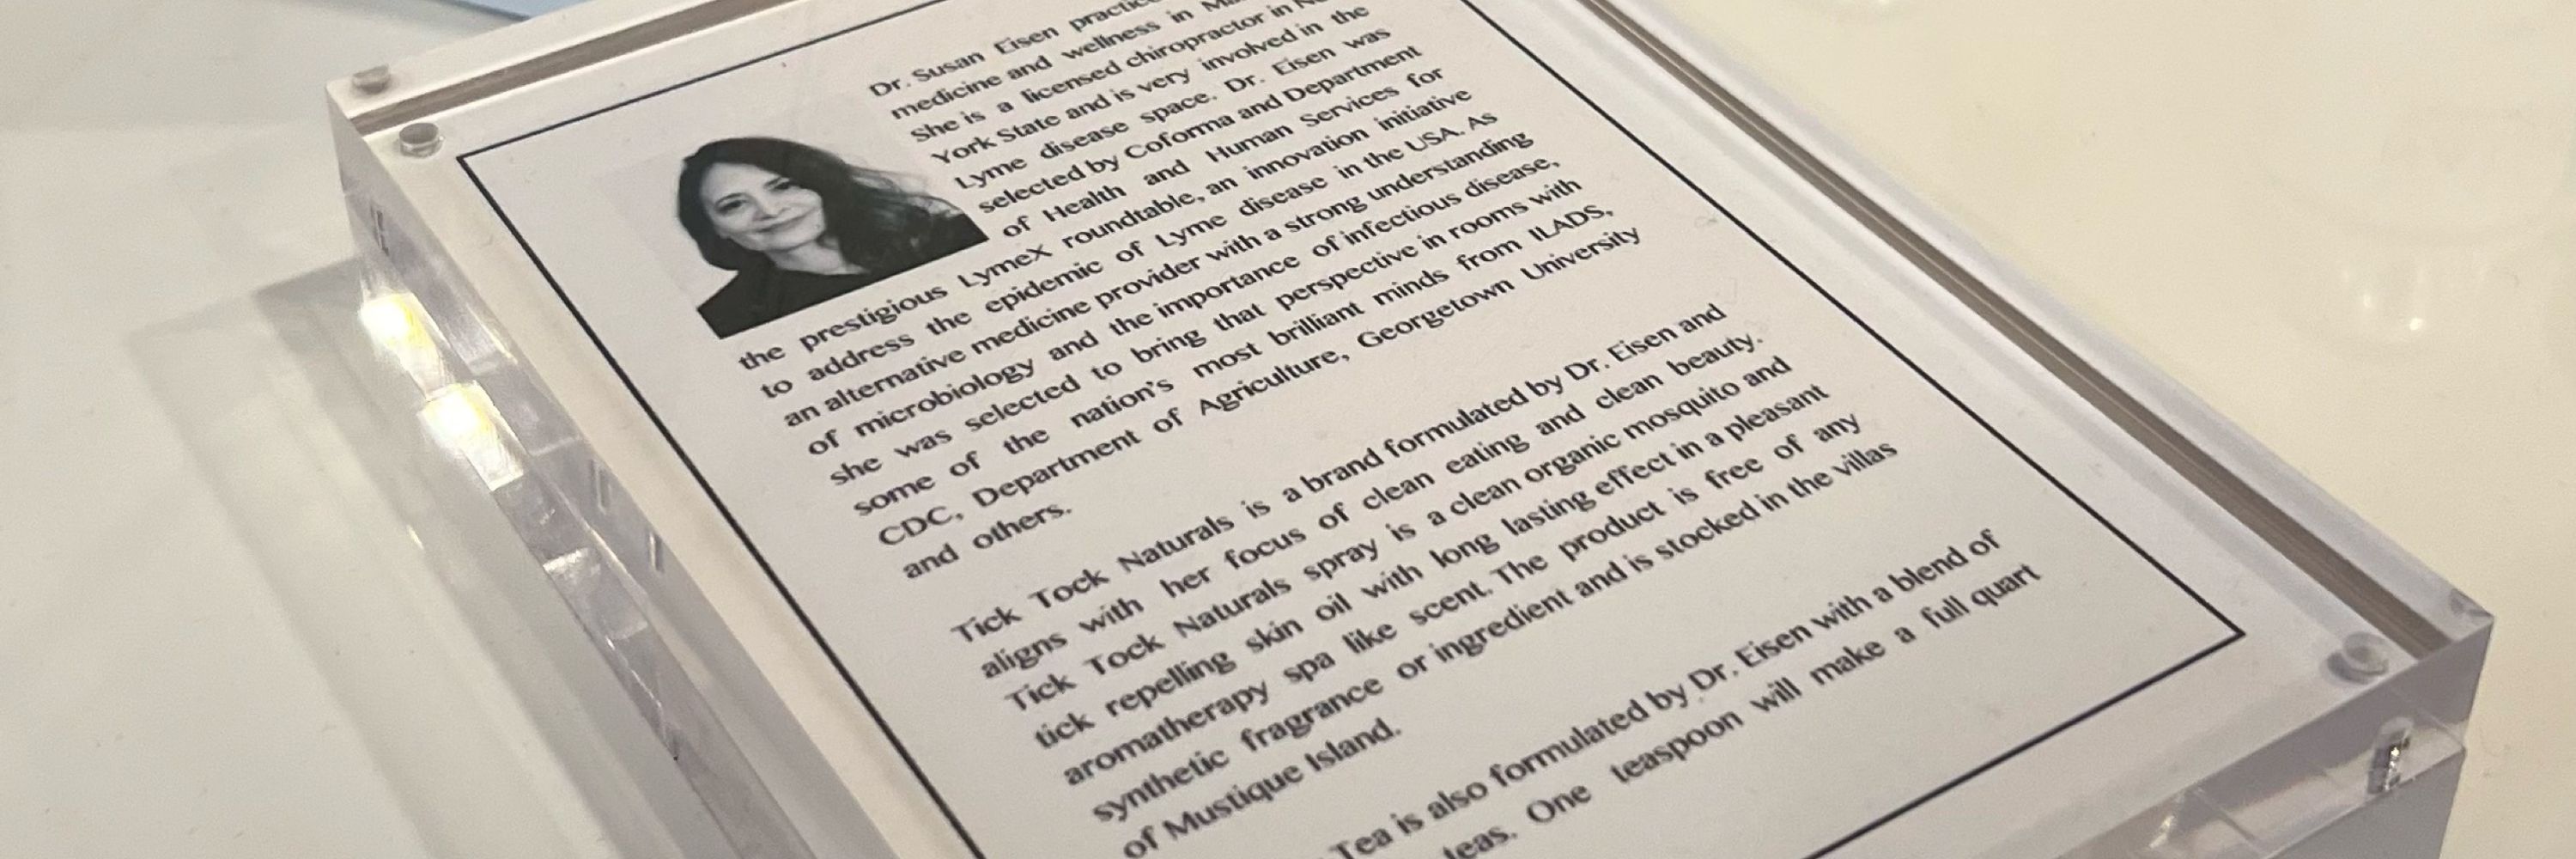 Dr. Susan Eisen
medicine and wellness in
She is a licensed chiropractor in
York State and is very involved in the
Lyme disease space. Dr. Eisen was
selected by Coforma and Department
of Health and Human Services for
the prestigious LymeX roundtable, an innovation initiative
to address the epidemic of Lyme disease in the USA. As
an alternative medicine provider with a strong understanding
of microbiology and the importance of infectious disease,
she was selected to bring that perspective in rooms with
some of the nation's most brilliant minds from ILADS,
CDC, Department of Agriculture, Georgetown University
and others.
Tick Tock Naturals is a brand formulated by Dr. Eisen and
aligns with her focus of clean eating and clean beauty.
Tick Tock Naturals spray is a clean organic mosquito and
tick repelling skin oil with long lasting effect in a pleasant
aromatherapy spa like scent. The product is free of any
synthetic fragrance or ingredient and is stocked in the villas
of Mustique Island.
Tea is also formulated by Dr. Eisen with a blend of
teas. One teaspoon will make a full quart